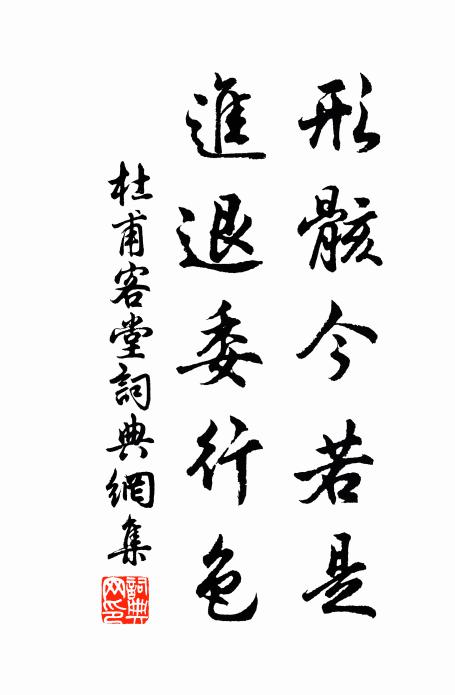 形骸今若是
進退委行色
杜甫客堂詞典網集
詞典
网印